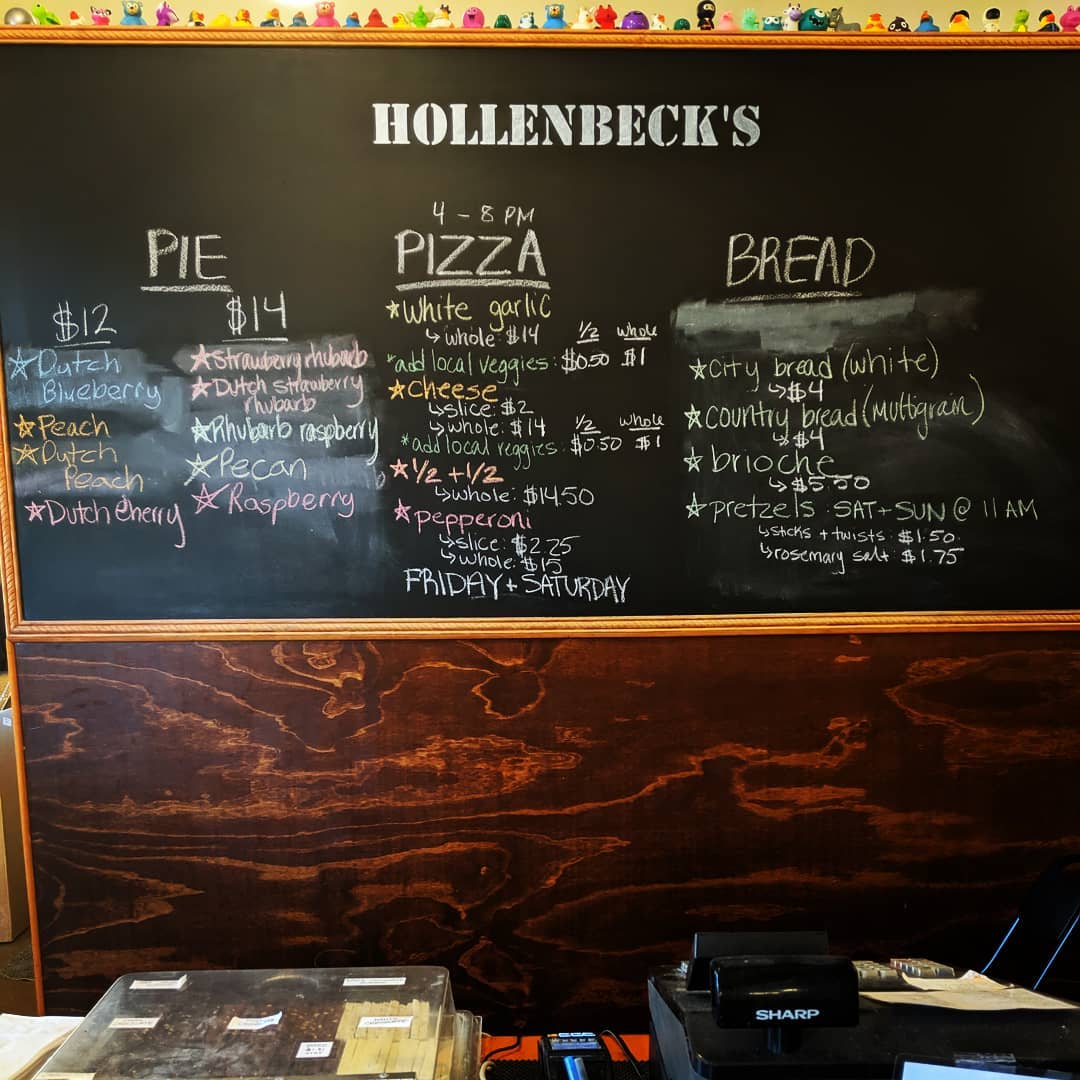 HOLLENBECK'S
PIE
$12
★Dutch
Blueberry
★Peach
★Dutch
Peach
★Dutch Cherry
$14
★Strawberry rhubarb
★Dutch strawberry
rhubarb
★Rhubarb raspberry
★Pecan
★Raspberry
4 - 8 PM
PIZZA
★White garlic
↳whole: $14 1/2 whole
*add local veggies: $0.50 $1
★Cheese
↳slice: $2
↳whole: $14 1/2 whole
*add local veggies: $0.50 $1
★1/2 + 1/2
↳whole: $14.50
★pepperoni
↳slice: $2.25
↳whole: $15
FRIDAY + SATURDAY
BREAD
★City bread (white)
↳$4
★Country bread (multigrain)
↳$4
★brioche
↳$5.50
★pretzels: SAT + SUN @ 11 AM
↳sticks + twists: $1.50
↳rosemary salt: $1.75
SHARP